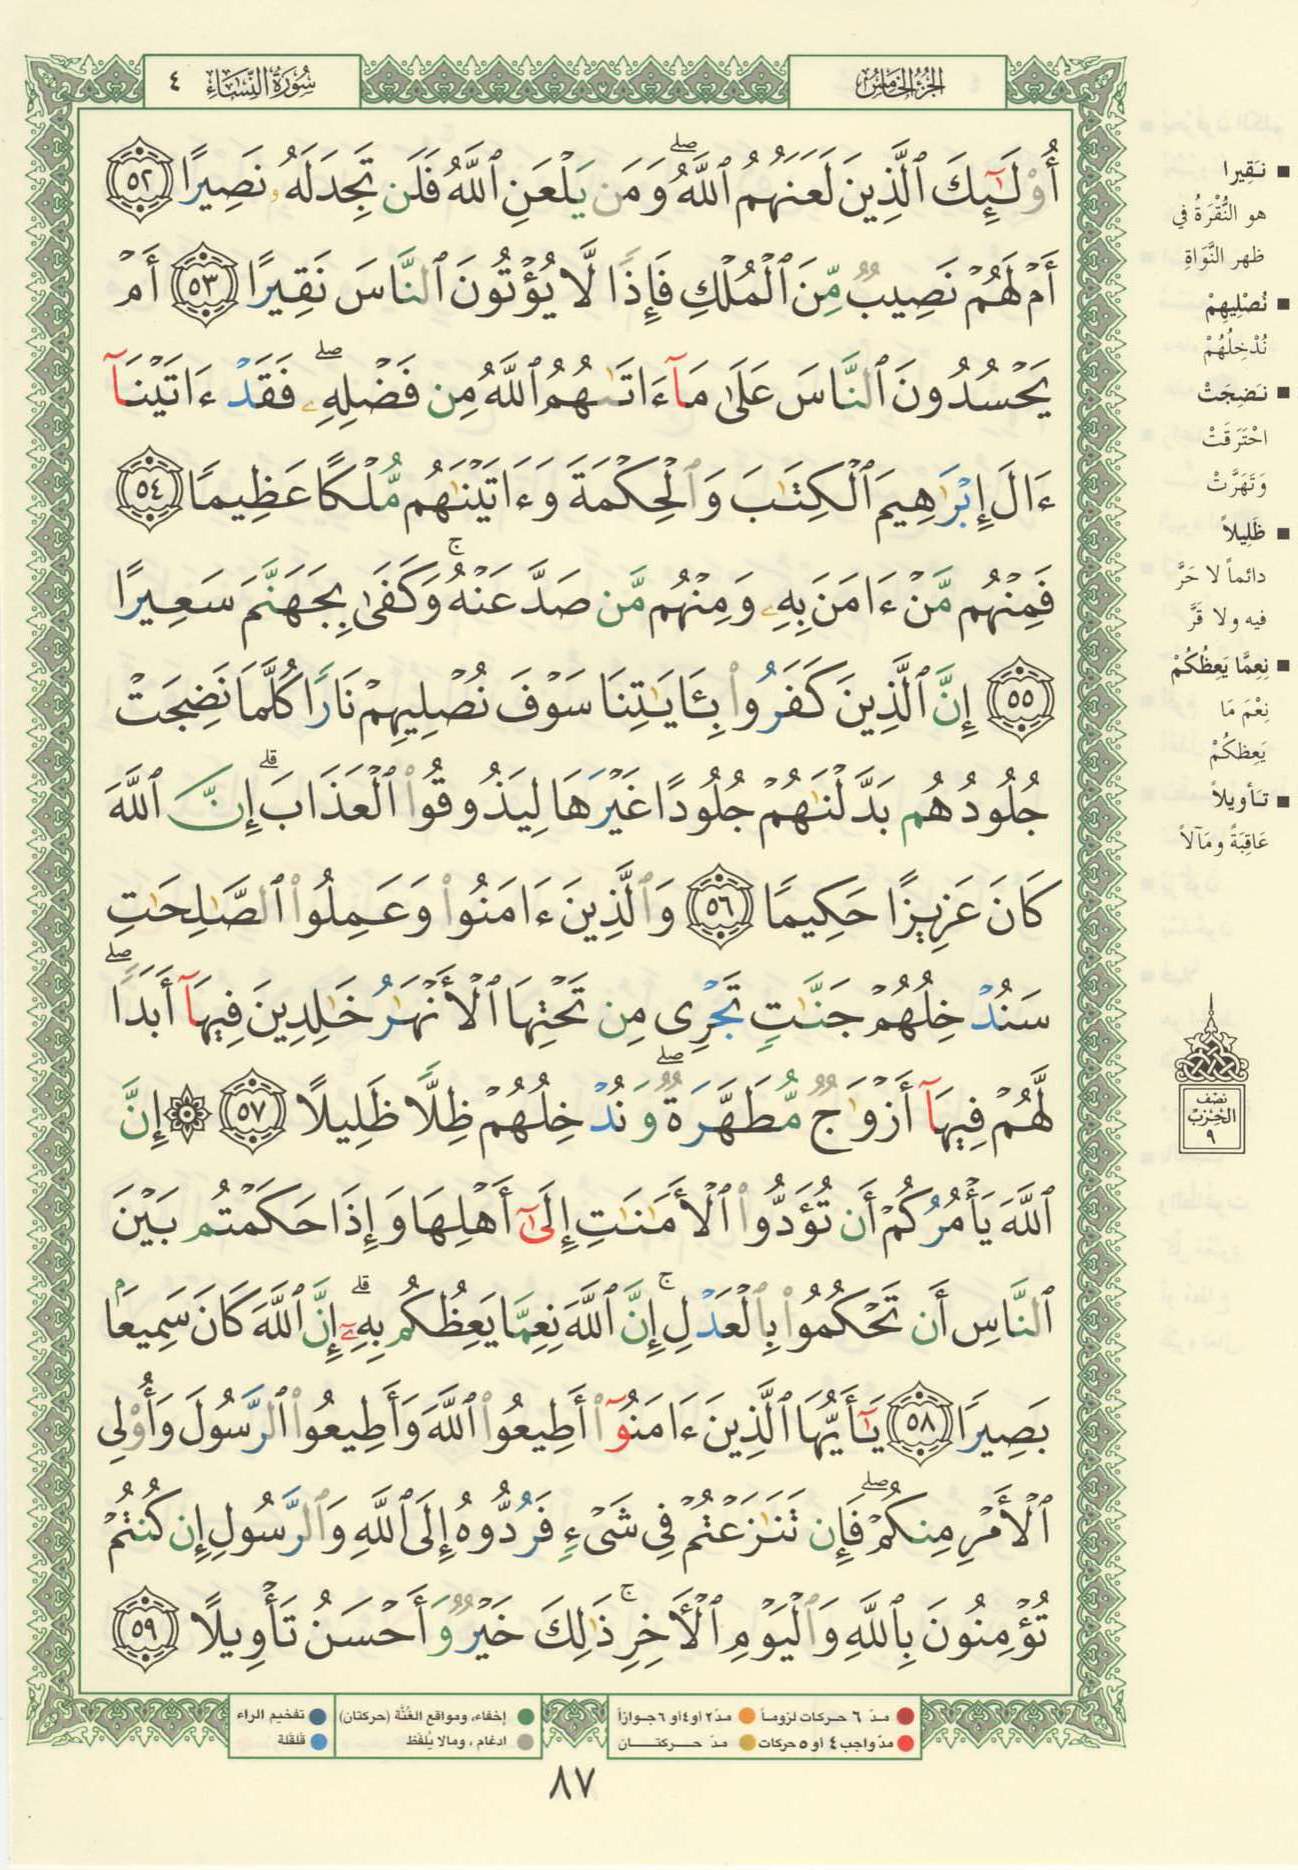 سُورَةُ النِّسَاءِ ٤
الجُزْءُ الخَامِسُ
أُوْلَٰٓئِكَ ٱلَّذِينَ لَعَنَهُمُ ٱللَّهُۖ وَمَن يَلْعَنِ ٱللَّهُ فَلَن تَجِدَ لَهُۥ نَصِيرًا ﴿٥٢﴾
أَمْ لَهُمْ نَصِيبٌ مِّنَ ٱلْمُلْكِ فَإِذًا لَّا يُؤْتُونَ ٱلنَّاسَ نَقِيرًا ﴿٥٣﴾ أَمْ
يَحْسُدُونَ ٱلنَّاسَ عَلَىٰ مَآ ءَاتَىٰهُمُ ٱللَّهُ مِن فَضْلِهِۦۖ فَقَدْ ءَاتَيْنَآ
ءَالَ إِبْرَٰهِيمَ ٱلْكِتَٰبَ وَٱلْحِكْمَةَ وَءَاتَيْنَٰهُم مُّلْكًا عَظِيمًا ﴿٥٤﴾
فَمِنْهُم مَّنْ ءَامَنَ بِهِۦ وَمِنْهُم مَّن صَدَّ عَنْهُۚ وَكَفَىٰ بِجَهَنَّمَ سَعِيرًا
﴿٥٥﴾ إِنَّ ٱلَّذِينَ كَفَرُوا۟ بِـَٔايَٰتِنَا سَوْفَ نُصْلِيهِمْ نَارًا كُلَّمَا نَضِجَتْ
جُلُودُهُم بَدَّلْنَٰهُمْ جُلُودًا غَيْرَهَا لِيَذُوقُوا۟ ٱلْعَذَابَۗ إِنَّ ٱللَّهَ
كَانَ عَزِيزًا حَكِيمًا ﴿٥٦﴾ وَٱلَّذِينَ ءَامَنُوا۟ وَعَمِلُوا۟ ٱلصَّٰلِحَٰتِ
سَنُدْخِلُهُمْ جَنَّٰتٍ تَجْرِى مِن تَحْتِهَا ٱلْأَنْهَٰرُ خَٰلِدِينَ فِيهَآ أَبَدًاۖ
لَّهُمْ فِيهَآ أَزْوَٰجٌ مُّطَهَّرَةٌۖ وَنُدْخِلُهُمْ ظِلًّا ظَلِيلًا ﴿٥٧﴾ ۞ إِنَّ
ٱللَّهَ يَأْمُرُكُمْ أَن تُؤَدُّوا۟ ٱلْأَمَٰنَٰتِ إِلَىٰٓ أَهْلِهَا وَإِذَا حَكَمْتُم بَيْنَ
ٱلنَّاسِ أَن تَحْكُمُوا۟ بِٱلْعَدْلِۚ إِنَّ ٱللَّهَ نِعِمَّا يَعِظُكُم بِهِۦٓۗ إِنَّ ٱللَّهَ كَانَ سَمِيعًۢا
بَصِيرًا ﴿٥٨﴾ يَٰٓأَيُّهَا ٱلَّذِينَ ءَامَنُوٓا۟ أَطِيعُوا۟ ٱللَّهَ وَأَطِيعُوا۟ ٱلرَّسُولَ وَأُوْلِى
ٱلْأَمْرِ مِنكُمْۖ فَإِن تَنَٰزَعْتُمْ فِى شَىْءٍ فَرُدُّوهُ إِلَى ٱللَّهِ وَٱلرَّسُولِ إِن كُنتُمْ
تُؤْمِنُونَ بِٱللَّهِ وَٱلْيَوْمِ ٱلْءَاخِرِۚ ذَٰلِكَ خَيْرٌ وَأَحْسَنُ تَأْوِيلًا ﴿٥٩﴾
■ نَقِيرا
هو النُّقْرَةُ في
ظهر النَّوَاةِ
■ نُصْلِيهِمْ
نُدْخِلُهُمْ
■ نَضِجَتْ
احْتَرَقَتْ
وَتَهَرَّتْ
■ ظَلِيلاً
دائماً لا حَرَّ
فيه ولا قَرَّ
■ نِعِمَّا يَعِظُكُمْ
نِعْمَ مَا
يَعِظكُمْ
■ تأويلاً
عَاقِبَةً ومَآلاً
نِصْف
الحِزْب
٩
● مدّ ٦ حركات لزوماً ● مدّ ٢ أو ٤ أو ٦ جوازاً
● مدّ واجب ٤ أو ٥ حركات ● مدّ حركتان
● إخفاء، ومواقع الغُنَّة (حركتان) ● تفخيم الراء
● ادغام، ومالا يُلفَظ ● قلقلة
٨٧